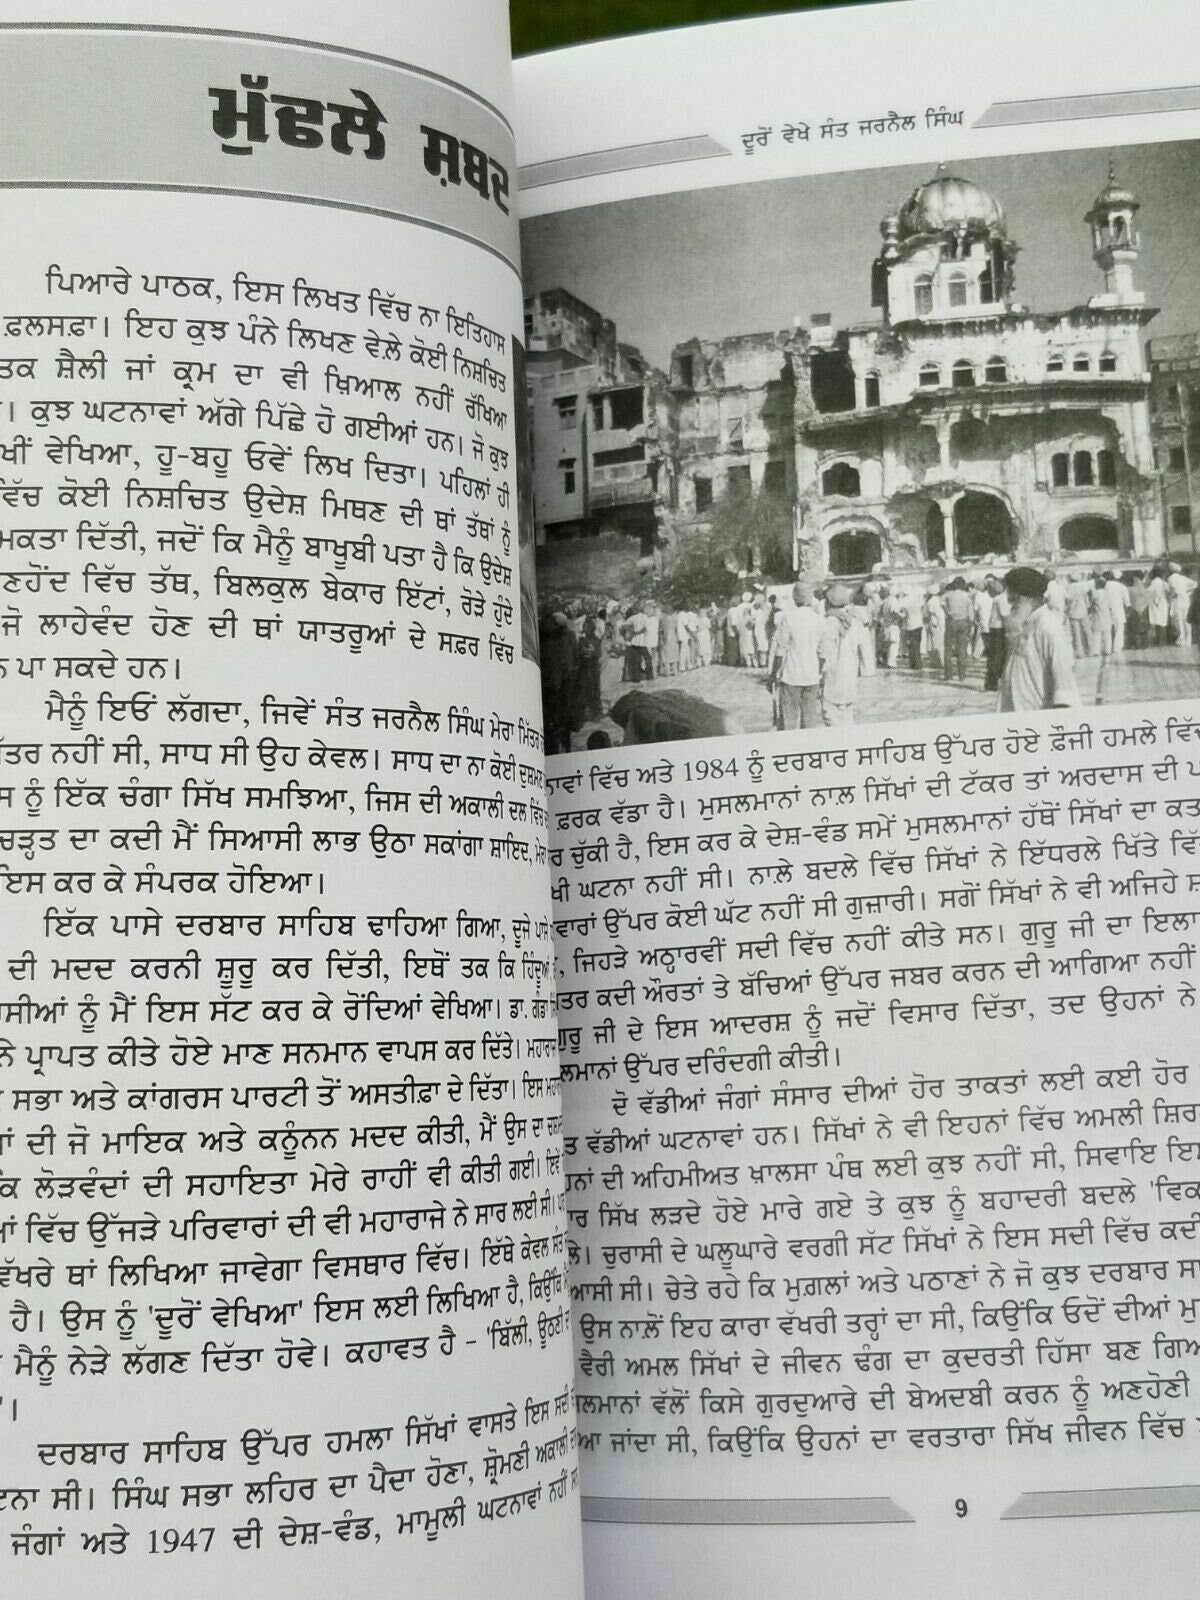 ਮੁੱਢਲੇ ਸ਼ਬਦ
ਪਿਆਰੇ ਪਾਠਕ, ਇਸ ਲਿਖਤ ਵਿੱਚ ਨਾ ਇਤਿਹਾਸ
ਫ਼ਲਸਫ਼ਾ। ਇਹ ਕੁਝ ਪੰਨੇ ਲਿਖਣ ਵੇਲ਼ੇ ਕੋਈ ਨਿਸ਼ਚਿਤ
ਤਕ ਸ਼ੈਲੀ ਜਾਂ ਕ੍ਰਮ ਦਾ ਵੀ ਖ਼ਿਆਲ ਨਹੀਂ ਰੱਖਿਆ
। ਕੁਝ ਘਟਨਾਵਾਂ ਅੱਗੇ ਪਿੱਛੇ ਹੋ ਗਈਆਂ ਹਨ। ਜੋ ਕੁਝ
ਖੀਂ ਵੇਖਿਆ, ਹੂ-ਬਹੂ ਓਵੇਂ ਲਿਖ ਦਿਤਾ। ਪਹਿਲਾਂ ਹੀ
ਵਿੱਚ ਕੋਈ ਨਿਸ਼ਚਿਤ ਉਦੇਸ਼ ਮਿਥਣ ਦੀ ਥਾਂ ਤੱਥਾਂ ਨੂੰ
ਮਕਤਾ ਦਿੱਤੀ, ਜਦੋਂ ਕਿ ਮੈਨੂੰ ਬਾਖੂਬੀ ਪਤਾ ਹੈ ਕਿ ਉਦੇਸ਼
ਣਹੋਂਦ ਵਿੱਚ ਤੱਥ, ਬਿਲਕੁਲ ਬੇਕਾਰ ਇੱਟਾਂ, ਰੋੜੇ ਹੁੰਦੇ
ਜੋ ਲਾਹੇਵੰਦ ਹੋਣ ਦੀ ਥਾਂ ਯਾਤਰੂਆਂ ਦੇ ਸਫ਼ਰ ਵਿੱਚ
ਪਾ ਸਕਦੇ ਹਨ।
ਮੈਨੂੰ ਇਓਂ ਲੱਗਦਾ, ਜਿਵੇਂ ਸੰਤ ਜਰਨੈਲ ਸਿੰਘ ਮੇਰਾ ਮਿੱਤਰ
ਤਰ ਨਹੀਂ ਸੀ, ਸਾਧ ਸੀ ਉਹ ਕੇਵਲ। ਸਾਧ ਦਾ ਨਾ ਕੋਈ ਦੁਸ਼ਮਣ
ਸ ਨੂੰ ਇੱਕ ਚੰਗਾ ਸਿੱਖ ਸਮਝਿਆ, ਜਿਸ ਦੀ ਅਕਾਲੀ ਦਲ ਵਿੱਚ
ਚੜ੍ਹਤ ਦਾ ਕਦੀ ਮੈਂ ਸਿਆਸੀ ਲਾਭ ਉਠਾ ਸਕਾਂਗਾ ਸ਼ਾਇਦ,
ਇਸ ਕਰ ਕੇ ਸੰਪਰਕ ਹੋਇਆ।
ਇੱਕ ਪਾਸੇ ਦਰਬਾਰ ਸਾਹਿਬ ਢਾਹਿਆ ਗਿਆ, ਦੂਜੇ ਪਾਸੇ
ਦੀ ਮਦਦ ਕਰਨੀ ਸ਼ੁਰੂ ਕਰ ਦਿੱਤੀ, ਇਥੋਂ ਤਕ ਕਿ ਹਿੰਦੂਆਂ
ਸੀਆਂ ਨੂੰ ਮੈਂ ਇਸ ਸੱਟ ਕਰ ਕੇ ਰੋਂਦਿਆਂ ਵੇਖਿਆ। ਡਾ. ਗੰਡਾ
ਨੇ ਪ੍ਰਾਪਤ ਕੀਤੇ ਹੋਏ ਮਾਣ ਸਨਮਾਨ ਵਾਪਸ ਕਰ ਦਿੱਤੇ।
ਸਭਾ ਅਤੇ ਕਾਂਗਰਸ ਪਾਰਟੀ ਤੋਂ ਅਸਤੀਫ਼ਾ ਦੇ ਦਿੱਤਾ। ਇਸ
ਾਂ ਦੀ ਜੋ ਮਾਇਕ ਅਤੇ ਕਨੂੰਨਨ ਮਦਦ ਕੀਤੀ, ਮੈਂ ਉਸ ਦਾ
ਕਿ ਲੋੜਵੰਦਾਂ ਦੀ ਸਹਾਇਤਾ ਮੇਰੇ ਰਾਹੀਂ ਵੀ ਕੀਤੀ ਗਈ।
ਆਂ ਵਿੱਚ ਉੱਜੜੇ ਪਰਿਵਾਰਾਂ ਦੀ ਵੀ ਮਹਾਰਾਜੇ ਨੇ ਸਾਰ ਲਈ ਸੀ।
ਵੱਖਰੇ ਥਾਂ ਲਿਖਿਆ ਜਾਵੇਗਾ ਵਿਸਥਾਰ ਵਿੱਚ। ਇੱਥੇ ਕੇਵਲ ਸੰਤ
ਹੈ। ਉਸ ਨੂੰ 'ਦੂਰੋਂ ਵੇਖਿਆ' ਇਸ ਲਈ ਲਿਖਿਆ ਹੈ, ਕਿਉਂਕਿ
ਮੈਨੂੰ ਨੇੜੇ ਲੱਗਣ ਦਿੱਤਾ ਹੋਵੇ। ਕਹਾਵਤ ਹੈ - 'ਬਿੱਲੀ, ਊਠਣੀ ਦਾ
'।
ਦਰਬਾਰ ਸਾਹਿਬ ਉੱਪਰ ਹਮਲਾ ਸਿੱਖਾਂ ਵਾਸਤੇ ਇਸ ਸਦੀ
ਟਨਾ ਸੀ। ਸਿੰਘ ਸਭਾ ਲਹਿਰ ਦਾ ਪੈਦਾ ਹੋਣਾ, ਸ਼੍ਰੋਮਣੀ ਅਕਾਲੀ
ਜੰਗਾਂ ਅਤੇ 1947 ਦੀ ਦੇਸ਼-ਵੰਡ, ਮਾਮੂਲੀ ਘਟਨਾਵਾਂ ਨਹੀਂ
ਦੂਰੋਂ ਵੇਖੇ ਸੰਤ ਜਰਨੈਲ ਸਿੰਘ
ਨਾਵਾਂ ਵਿੱਚ ਅਤੇ 1984 ਨੂੰ ਦਰਬਾਰ ਸਾਹਿਬ ਉੱਪਰ ਹੋਏ ਫ਼ੌਜੀ ਹਮਲੇ ਵਿੱਚ
ਫ਼ਰਕ ਵੱਡਾ ਹੈ। ਮੁਸਲਮਾਨਾਂ ਨਾਲ਼ ਸਿੱਖਾਂ ਦੀ ਟੱਕਰ ਤਾਂ ਅਰਦਾਸ ਦੀ
ਰ ਚੁੱਕੀ ਹੈ, ਇਸ ਕਰ ਕੇ ਦੇਸ਼-ਵੰਡ ਸਮੇਂ ਮੁਸਲਮਾਨਾਂ ਹੱਥੋਂ ਸਿੱਖਾਂ ਦਾ ਕਤ
ਖੀ ਘਟਨਾ ਨਹੀਂ ਸੀ। ਨਾਲ਼ੇ ਬਦਲੇ ਵਿੱਚ ਸਿੱਖਾਂ ਨੇ ਇੱਧਰਲੇ ਖਿੱਤੇ ਵਿੱ
ਵਾਰਾਂ ਉੱਪਰ ਕੋਈ ਘੱਟ ਨਹੀਂ ਸੀ ਗੁਜ਼ਾਰੀ। ਸਗੋਂ ਸਿੱਖਾਂ ਨੇ ਵੀ ਅਜਿਹੇ
, ਜਿਹੜੇ ਅਠ੍ਹਾਰਵੀਂ ਸਦੀ ਵਿੱਚ ਨਹੀਂ ਕੀਤੇ ਸਨ। ਗੁਰੂ ਜੀ ਦਾ ਇਲਾ
ਤਰ ਕਦੀ ਔਰਤਾਂ ਤੇ ਬੱਚਿਆਂ ਉੱਪਰ ਜਬਰ ਕਰਨ ਦੀ ਆਗਿਆ ਨਹੀਂ
ਗੁਰੂ ਜੀ ਦੇ ਇਸ ਆਦਰਸ਼ ਨੂੰ ਜਦੋਂ ਵਿਸਾਰ ਦਿੱਤਾ, ਤਦ ਉਹਨਾਂ ਨੇ
ਲਮਾਨਾਂ ਉੱਪਰ ਦਰਿੰਦਗੀ ਕੀਤੀ।
ਦੋ ਵੱਡੀਆਂ ਜੰਗਾਂ ਸੰਸਾਰ ਦੀਆਂ ਹੋਰ ਤਾਕਤਾਂ ਲਈ ਕਈ ਹੋਰ
ਤ ਵੱਡੀਆਂ ਘਟਨਾਵਾਂ ਹਨ। ਸਿੱਖਾਂ ਨੇ ਵੀ ਇਹਨਾਂ ਵਿੱਚ ਅਮਲੀ ਸ਼ਿਰ
ਹਨਾਂ ਦੀ ਅਹਿਮੀਅਤ ਖ਼ਾਲਸਾ ਪੰਥ ਲਈ ਕੁਝ ਨਹੀਂ ਸੀ, ਸਿਵਾਇ ਇਸ
ਾਰ ਸਿੱਖ ਲੜਦੇ ਹੋਏ ਮਾਰੇ ਗਏ ਤੇ ਕੁਝ ਨੂੰ ਬਹਾਦਰੀ ਬਦਲੇ 'ਵਿਕ
ਲੇ। ਚੁਰਾਸੀ ਦੇ ਘਲੂਘਾਰੇ ਵਰਗੀ ਸੱਟ ਸਿੱਖਾਂ ਨੇ ਇਸ ਸਦੀ ਵਿੱਚ ਕਦੀ
ਆਸੀ ਸੀ। ਚੇਤੇ ਰਹੇ ਕਿ ਮੁਗ਼ਲਾਂ ਅਤੇ ਪਠਾਣਾਂ ਨੇ ਜੋ ਕੁਝ ਦਰਬਾਰ ਸਾ
ਉਸ ਨਾਲ਼ੋਂ ਇਹ ਕਾਰਾ ਵੱਖਰੀ ਤਰ੍ਹਾਂ ਦਾ ਸੀ, ਕਿਉਂਕਿ ਓਦੋਂ ਦੀਆਂ ਮੁ
ਵੈਰੀ ਅਮਲ ਸਿੱਖਾਂ ਦੇ ਜੀਵਨ ਢੰਗ ਦਾ ਕੁਦਰਤੀ ਹਿੱਸਾ ਬਣ ਗਿਆ
ਲਮਾਨਾਂ ਵੱਲੋਂ ਕਿਸੇ ਗੁਰਦੁਆਰੇ ਦੀ ਬੇਅਦਬੀ ਕਰਨ ਨੂੰ ਅਣਹੋਣੀ
ਆ ਜਾਂਦਾ ਸੀ, ਕਿਉਂਕਿ ਉਹਨਾਂ ਦਾ ਵਰਤਾਰਾ ਸਿੱਖ ਜੀਵਨ ਵਿੱਚ
9